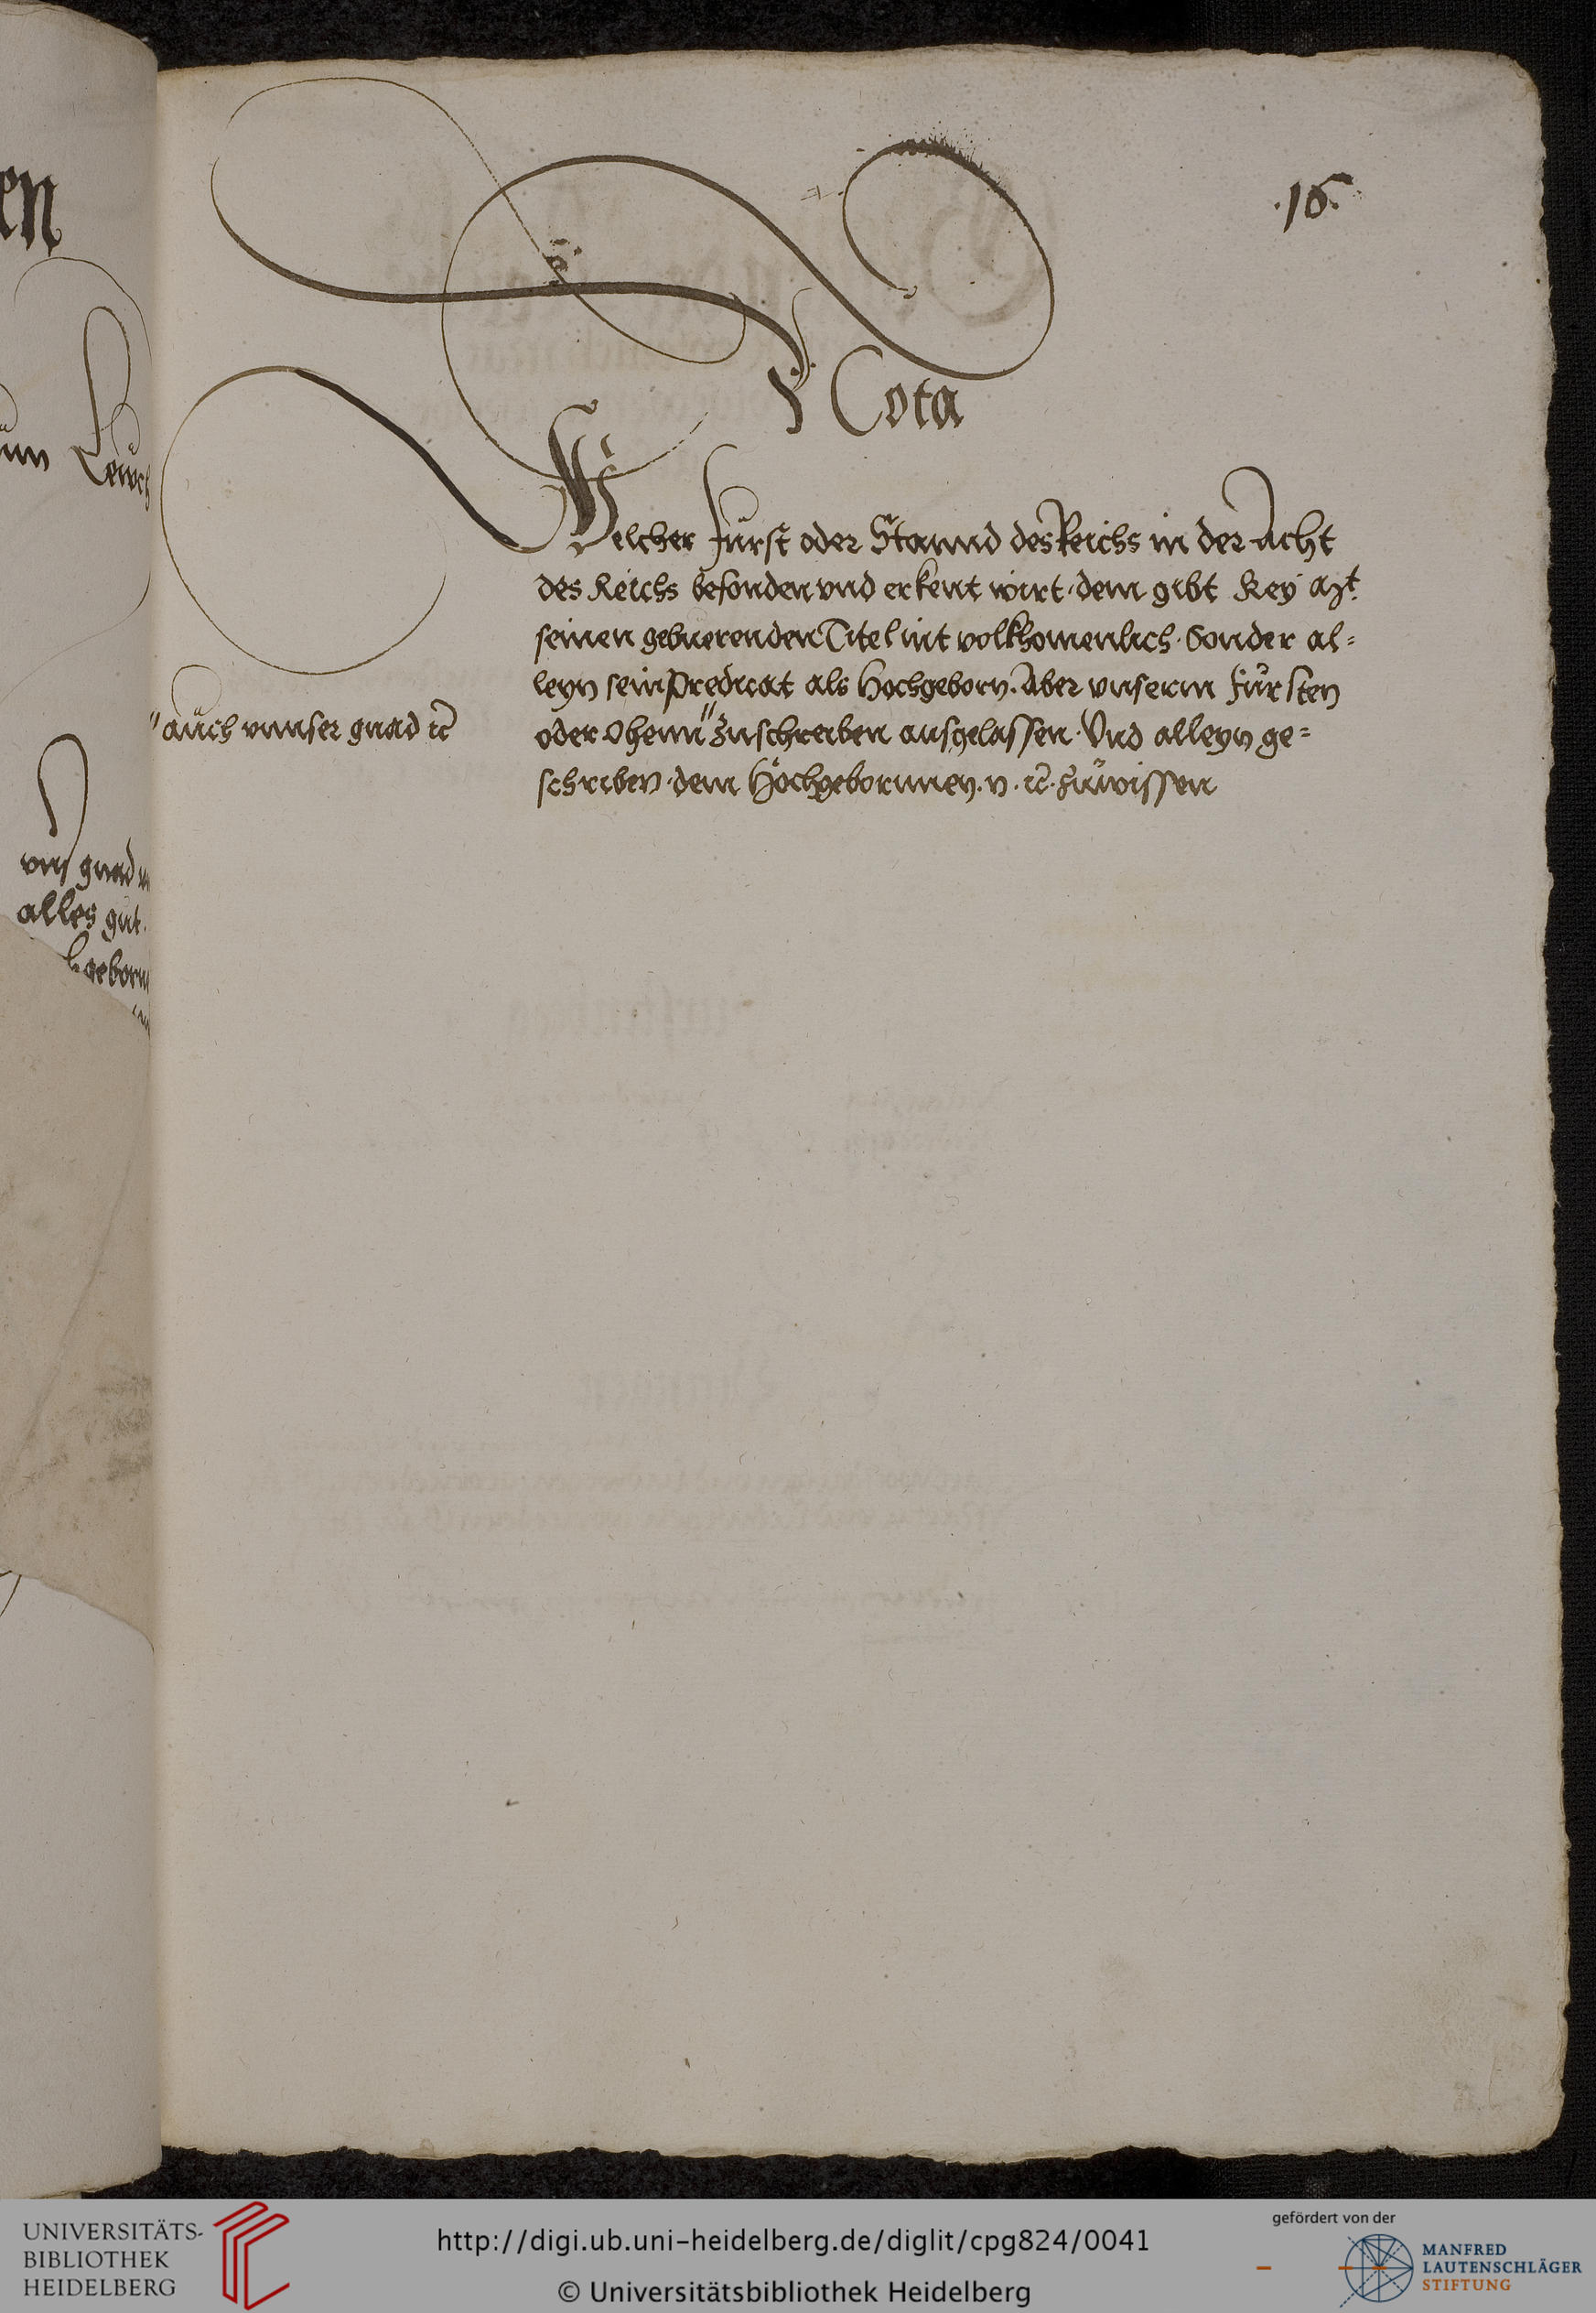 .16.
Nota
Welcher Fürst oder Stannd des Reichs in der Acht
des Reichs befonden vnd erkent wirt · dem gibt Key Mt.
seinen gebuerenden Titel nit volkhomenlich · Sonder al=
leyn sein Predicat als Hochgeborn. Aber vnserm Fürsten
oder Ohem " Zuschreiben ausgelassen · Vnd alleyn ge=
schriben · dem Hochgebornnen. N. ꝛc̄. Zuwissen
" auch vnnser gnad ꝛc̄
en
vns gnad
alles gut.
geborn
UNIVERSITÄTS-
BIBLIOTHEK
HEIDELBERG
http://digi.ub.uni-heidelberg.de/diglit/cpg824/0041
© Universitätsbibliothek Heidelberg
gefördert von der
MANFRED
LAUTENSCHLÄGER
STIFTUNG